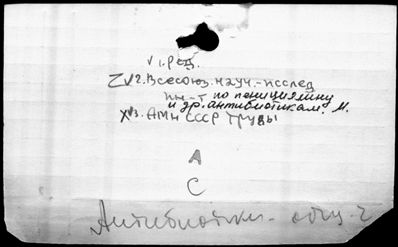 √1. Ред.
Z√2. Всесоюз. науч.-исслед
ин-т по пенициллину
и др. антибиотикам. М.
X√3. АМН СССР Труды
А
С
Антибиотики - общ - 2